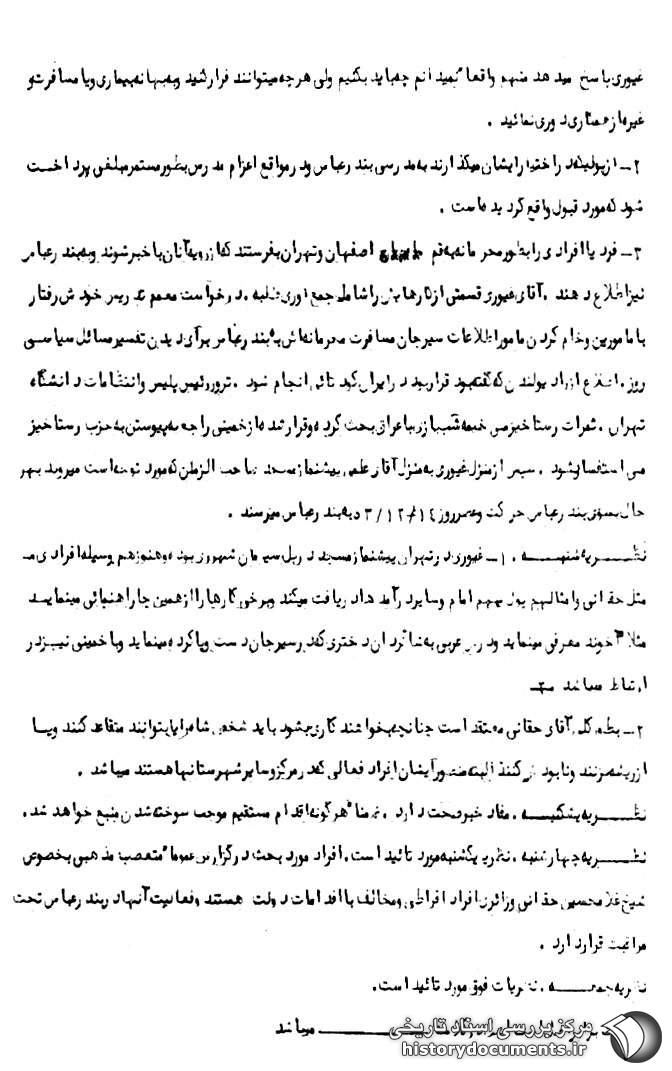 غیوری پاسخ میدهد منهم واقعا نمیدانم چه باید بکنیم ولی هرچه میتوانند فرار کنید و به بهانه بیماری و یا مسافرت و
غیره از همکاری دوری نمائید .
۲ــ از پولیکه در اختیار ایشان میگذارند به مدرسی بندرعباس و در مواقع اعزام مدرس بطور مستمر مبلغی پرداخت
شود که مورد قبول واقع گردیده است .
۳ــ فرد یا افرادی را بطور محرمانه به قم اصفهان و تهران بفرستند که از رویه آنان باخبر شوند و به بندرعباس
نیز اطلاع دهند . آقای غیوری قسمتی از کارهایش را شامل جمع آوری طلبه . درخواست معمم و خوش رفتار
با مامورین و خام کردن مامور اطلاعات سیرجان مسافرت محرمانه اش به بندرعباس برای دیدن تفسیر مسائل سیاسی
روز . اطلاع از که گفته بود قرار بود در ایران کودتائی انجام شود . ترور رئیس پلیس و انتظامات دانشگاه
تهران . ثمرات رستاخیز می بحث کرده و قرار شده از خمینی راجع به پیوستن به حزب رستاخیز
می استفسار شود . سپس از منزل غیوری به منزل آقای علمی پیشنماز مسجد صاحب الزمان که مورد توجه است میروند بهر
حال بسوی بندرعباس حرکت و عصر روز ۳/۱۲/۱٤ به بندرعباس میرسند .
نظــــریه شنبـــه . ۱ــ غیوری در تهران پیشنماز مسجد در پل سیمان شهرری بوده و هنوز هم بوسیله افرادی
مثل حقانی و امثالهم پول سهم امام و سایر درآمدها دریافت میکند و برخی کارها را از همین جا راهنمائی مینمایــد
مثلا آخوند معرفی مینماید و درس عربی به شاگردان دختری که در سیرجان دست و پا کرده مینماید و با خمینی نیــز در
ارتباط میباشد .
۲ــ بطور کلی آقای حقانی معتقد است چنانچه بخواهند کاری بشود باید شخص شاه را یا بتوانند متقاعد کنند و یــا
از ریشه بزنند و نابود کنند البته منظور ایشان افراد فعالی که در مرکز و سایر شهرستانها هستند میباشد .
نظــــریه یکشنبـــه . مفاد خبر صحت دارد . ضمنا هرگونه اقدام مستقیم موجب سوخته شدن منبع خواهد شد .
نظــــریه چهارشنبه . نظریه یکشنبه مورد تائید است . افراد مورد بحث در گزارش عموما متعصب مذهبی بخصوص
شیخ غلامحسین حقانی و زائری افراد افراطی و مخالف با اقدامات دولت هستند و فعالیت آنها در بندرعباس تحت
مراقبت قرار دارد .
نظریه جمعـــــه . نظریات فوق مورد تائید است .
میباشد
مرکز بررسی اسناد تاریخی
historydocuments.ir